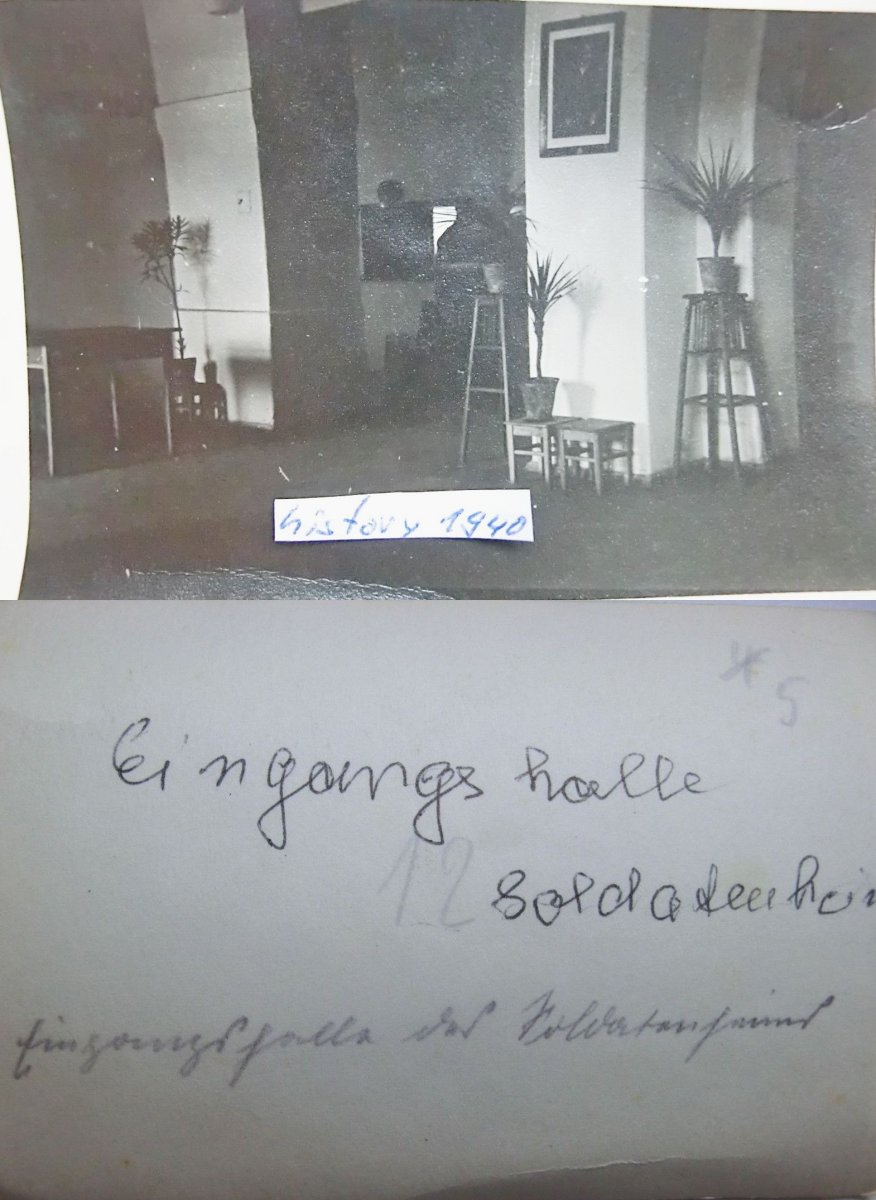 history 1940
* 5
Eingangshalle
12
Soldatenheim
Eingangshalle des Soldatenheimes